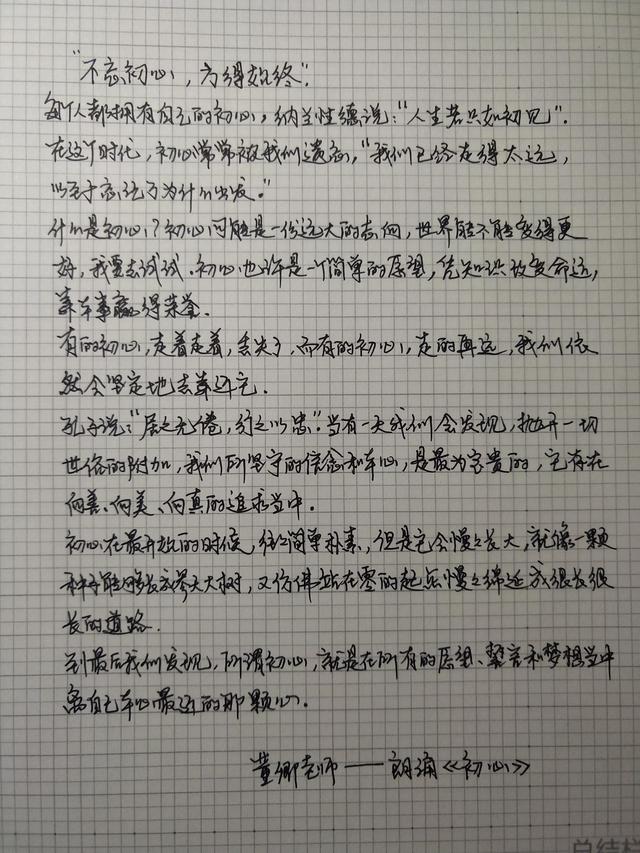 "不忘初心，方得始终".
每个人都拥有自己的初心，纳兰性德说："人生若只如初见".
在这个时代，初心常常被我们遗忘，"我们已经走得太远，
以至于忘记了为什么出发."
什么是初心？初心可能是一份远大的志向，世界能不能变得更
好，我要去试试.初心也许是一个简单的愿望，凭知识改变命运，
靠本事赢得荣誉.
有的初心，走着走着，丢失了，而有的初心，走的再远，我们依
然会坚定地去靠近它.
孔子说："居之无倦，行之以忠".当有一天我们会发现，抛开一切
世俗的附加，我们所坚守的信念和本心，是最为宝贵的，它存在
向善、向美、向真的追求当中.
初心在最开放的时候，往往简单朴素，但是它会慢慢长大，就像一颗
种子能够长成参天大树，又仿佛站在零的起点慢慢绵延成很长很
长的道路.
到最后我们发现，所谓初心，就是在所有的愿望、誓言和梦想当中
离自己本心最近的那颗心.
董卿老师——朗诵《初心》
总结